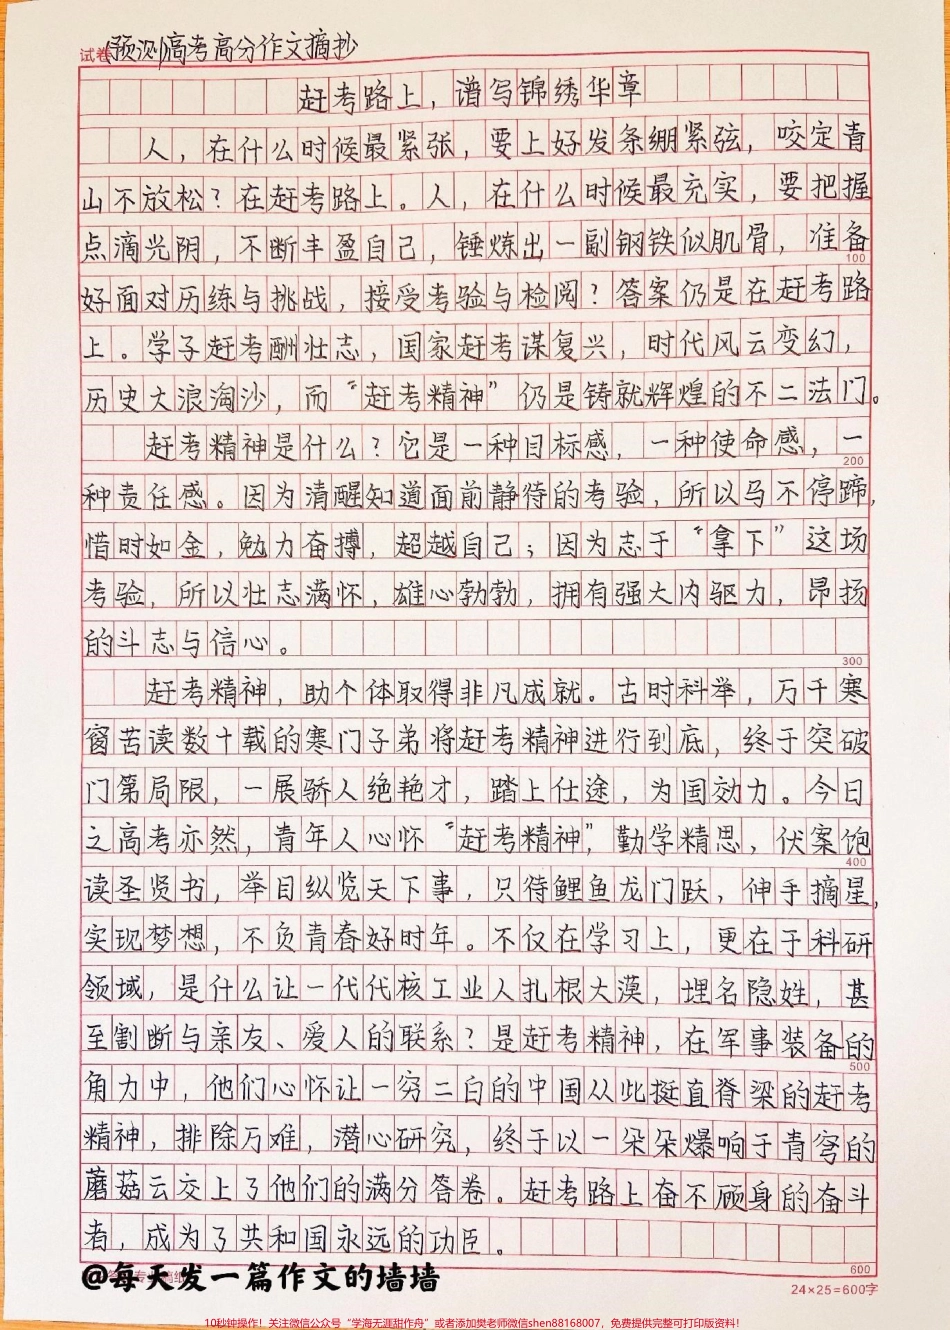 试卷(预测)高考高分作文摘抄
赶考路上，谱写锦绣华章
人，在什么时候最紧张，要上好发条绷紧弦，咬定青
山不放松？在赶考路上。人，在什么时候最充实，要把握
点滴光阴，不断丰盈自己，锤炼出一副钢铁似肌骨，准备
100
好面对历练与挑战，接受考验与检阅？答案仍是在赶考路
上。学子赶考酬壮志，国家赶考谋复兴，时代风云变幻，
历史大浪淘沙，而“赶考精神”仍是铸就辉煌的不二法门。
赶考精神是什么？它是一种目标感，一种使命感，一
200
种责任感。因为清醒知道面前静待的考验，所以马不停蹄，
惜时如金，勉力奋搏，超越自己；因为志于“拿下”这场
考验，所以壮志满怀，雄心勃勃，拥有强大内驱力，昂扬
的斗志与信心。
300
赶考精神，助个体取得非凡成就。古时科举，万千寒
窗苦读数十载的寒门子弟将赶考精神进行到底，终于突破
门第局限，一展骄人绝艳才，踏上仕途，为国效力。今日
之高考亦然，青年人心怀“赶考精神”，勤学精思，伏案饱
400
读圣贤书，举目纵览天下事，只待鲤鱼龙门跃，伸手摘星，
实现梦想，不负青春好时年。不仅在学习上，更在于科研
领域，是什么让一代代核工业人扎根大漠，埋名隐姓，甚
至割断与亲友、爱人的联系？是赶考精神，在军事装备的
500
角力中，他们心怀让一穷二白的中国从此挺直脊梁的赶考
精神，排除万难，潜心研究，终于以一朵朵爆响于青穹的
蘑菇云交上了他们的满分答卷。赶考路上奋不顾身的奋斗
者，成为了共和国永远的功臣。
600
@每天发一篇作文的墙墙
24×25=600字
10秒钟操作！关注微信公众号“学海无涯甜作舟”或者添加樊老师微信shen88168007，免费提供完整可打印版资料！